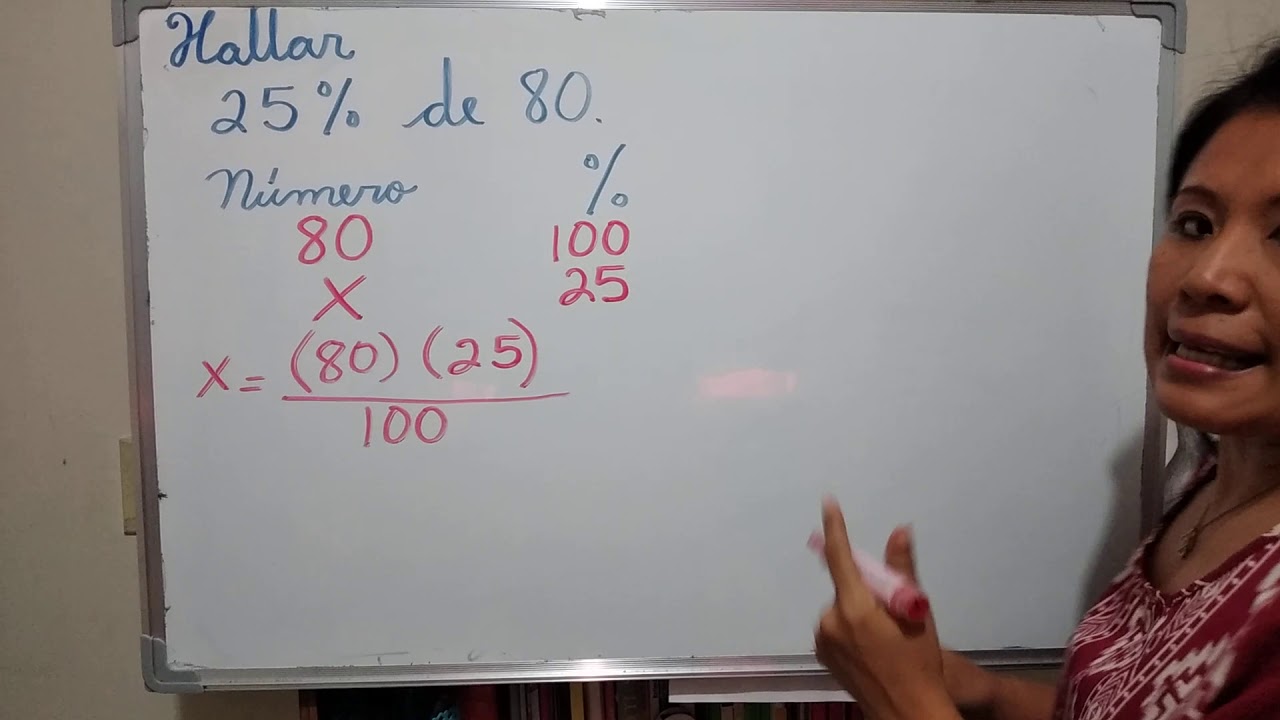 Hallar
25% de 80.
Número %
80 100
X 25
x = (80) (25)
100